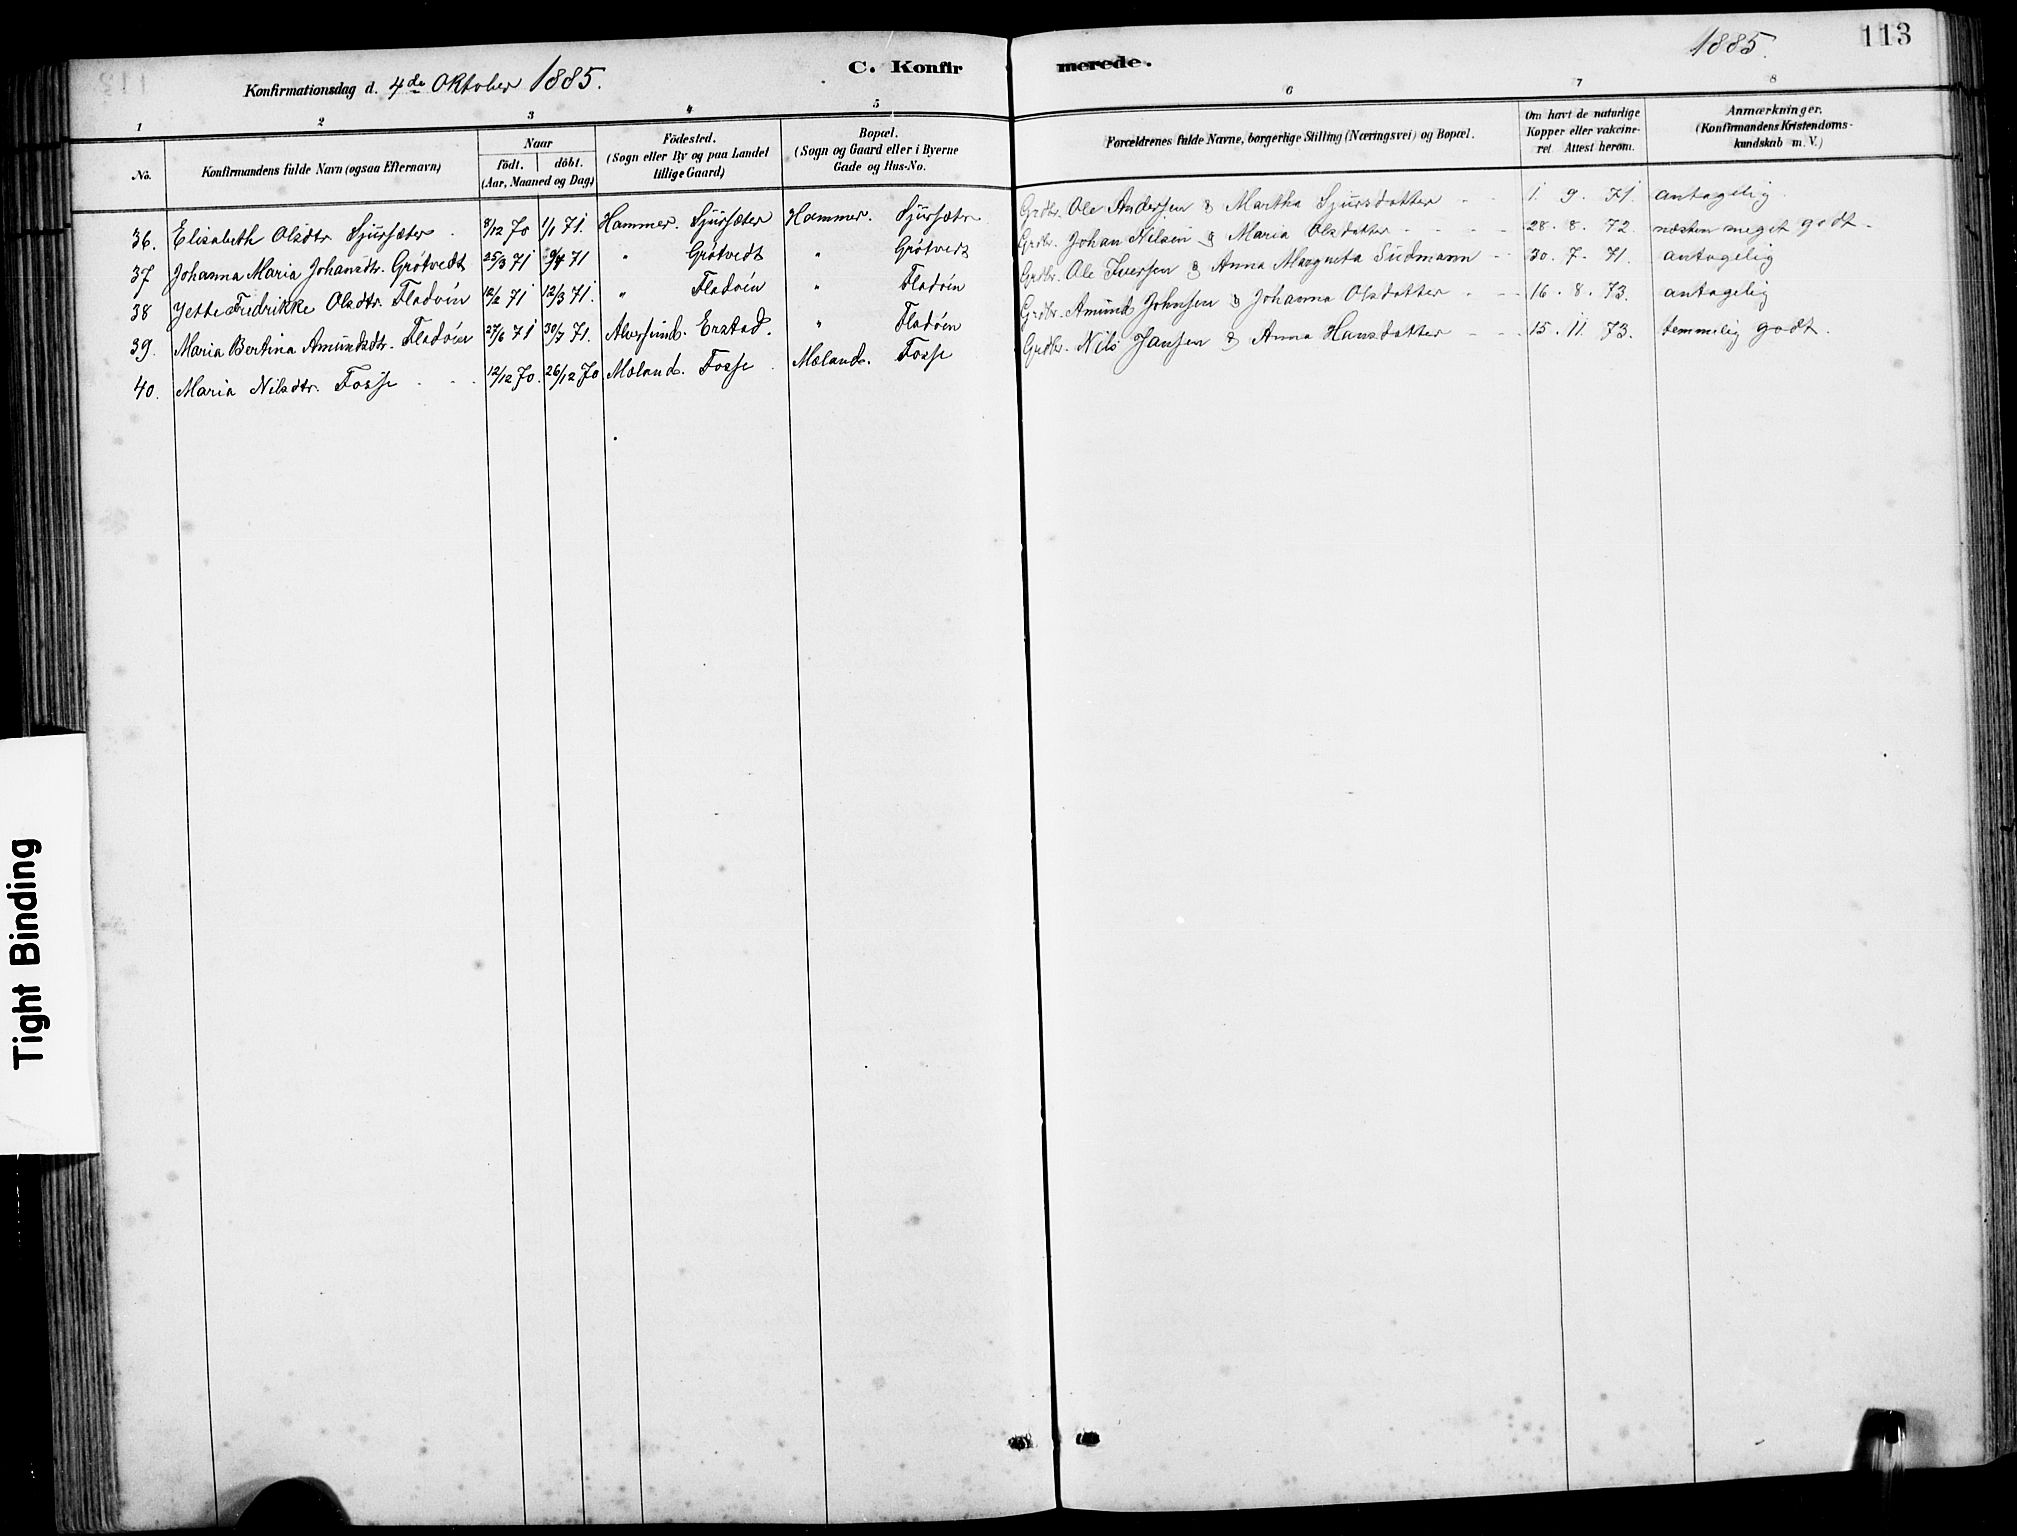 113
1885.
Konfirmationsdag d. 4de Oktober 1885.
C. Konfir merede.
1 2 3 4 5 6 7 8
No.
Konfirmandens fulde Navn (ogsaa Efternavn)
Naar
födt. döbt.
(Aar, Maaned og Dag)
Födested.
(Sogn eller By og paa Landet
tillige Gaard)
Bopæl.
(Sogn og Gaard eller i Byerne
Gade og Hus-No.
Forældrenes fulde Navne, borgerlige Stilling (Næringsvei) og Bopæl.
Om havt de naturlige
Kopper eller vakcine-
ret Attest herom.
Anmærkninger.
(Konfirmandens Kristendoms-
kundskab m. V.)
36. Elisabeth Olsdtr Sjursæter 8/12 70 1/1 71. Hammer. Sjursæter Hammer. Sjursætr Grdbr. Ole Andersen & Martha Sjursdatter 1. 9. 71. antagelig
37 Johanna Maria Johansdtr. Grötvedt 25/3 71 9/4 71 " Grötvedt " Grötvedt Grdbr. Johan Nilsen & Maria Olsdatter 28. 8. 72. næsten meget godt.
38 Jette Fredrikke Olsdtr. Fladöin 12/2 71 12/3 71. " Fladöin " Fladöin Grdbr. Ole Iversen & Anna Margreta Sudmann 30. 7. 71. antagelig
39. Maria Bertina Amundsdtr. Fladöin 27/6 71 30/7 71. Alversund. Erstad. " Fladöen Grdbr. Amund Johnsen & Johanna Olsdatter 16. 8. 73. antagelig
40. Maria Nilsdtr. Fosse 12/12 70. 26/12 70 Mæland. Fosse Mæland. Fosse Grdbr. Nils Jansen & Anna Hansdatter 15. 11 73. temmelig godt.
Tight Binding